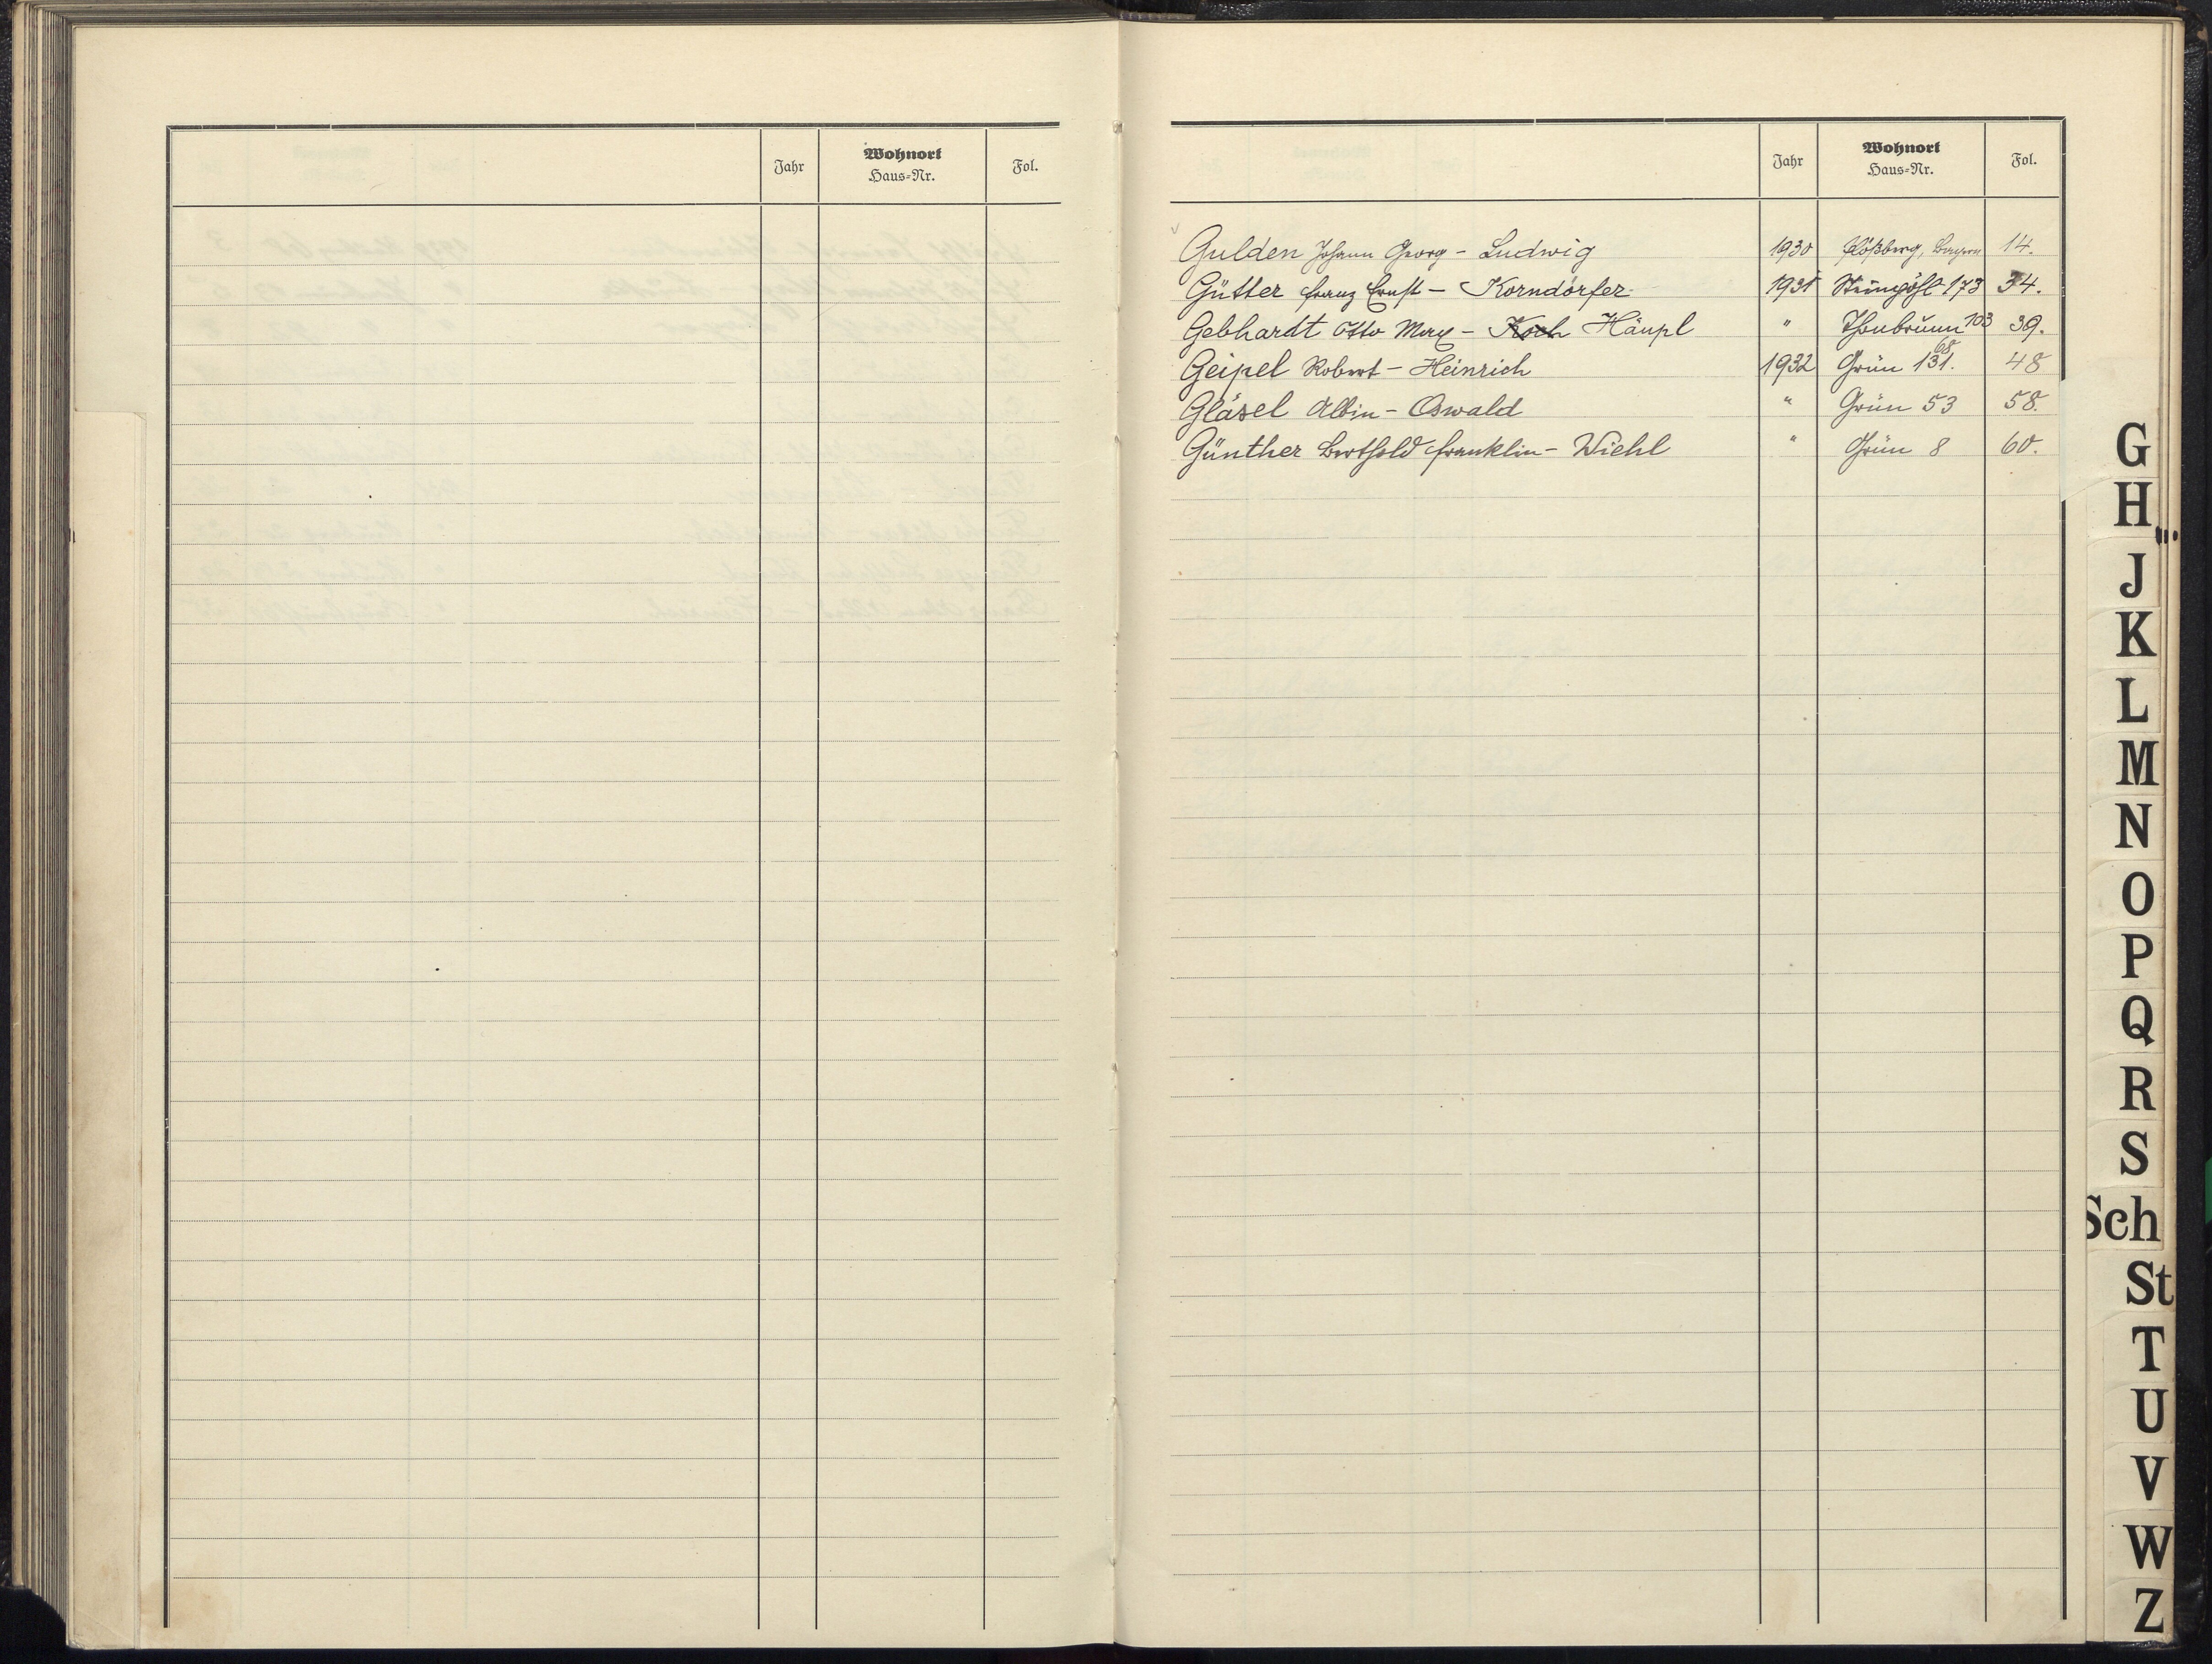 Jahr Wohnort Haus=Nr. Fol.
Jahr Wohnort Haus=Nr. Fol.
Gulden Johann Georg - Ludwig 1930 Flößberg, Bayern 14.
Gütter Franz Ernst - Korndörfer 1931 Steinpöhl 173 34.
Gebhardt Otto Max - Koch Häupl " Thonbrunn 103 39.
Geipel Robert - Heinrich 1932 Grün 131. 68 48
Gläsel Albin - Oswald " Grün 53 58.
Günther Berthold Franklin - Wiehl " Grün 8 60.
G
H
J
K
L
M
N
O
P
Q
R
S
Sch
St
T
U
V
W
Z